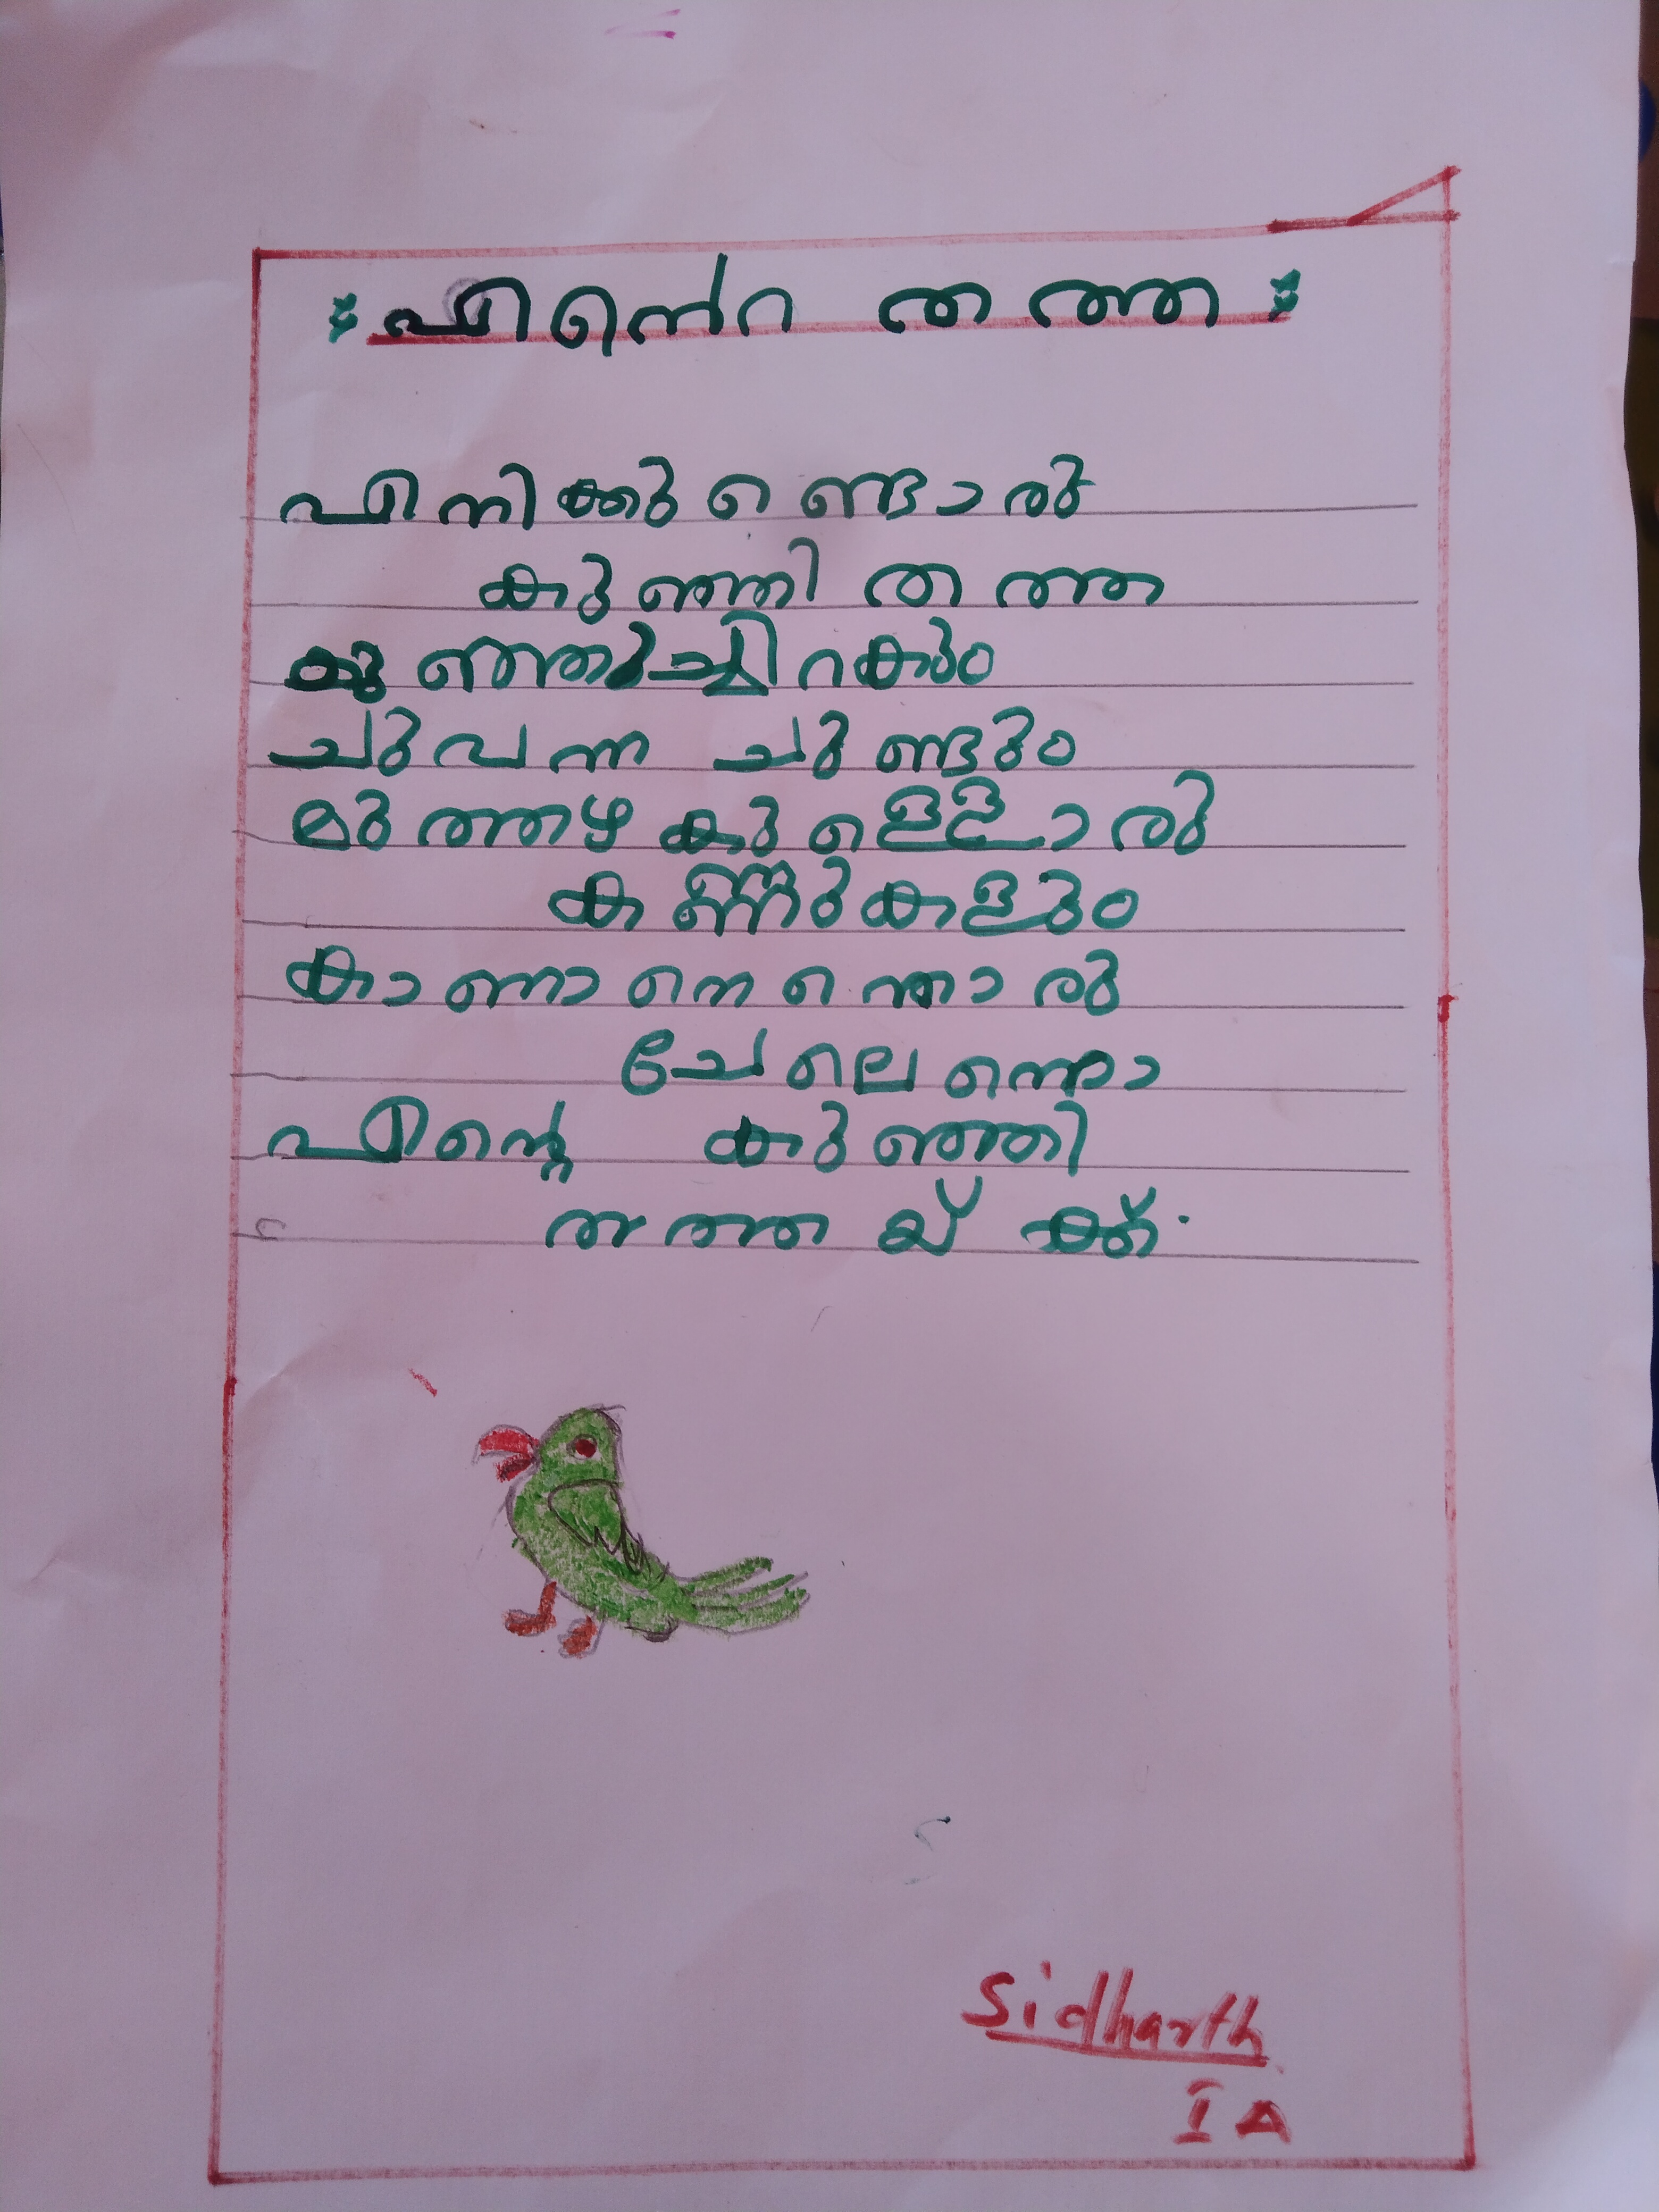 എന്റെ തത്ത
എനിക്കുണ്ടൊരു
കുഞ്ഞി തത്ത
കുഞ്ഞുച്ചിറകും
ചുവന്ന ചുണ്ടും
മുത്തഴകുള്ളൊരു
കണ്ണുകളും
കാണാനെന്തൊരു
ചേലെന്നൊ
എന്റെ കുഞ്ഞി
തത്തയ്ക്ക്.
Sidharth
I A